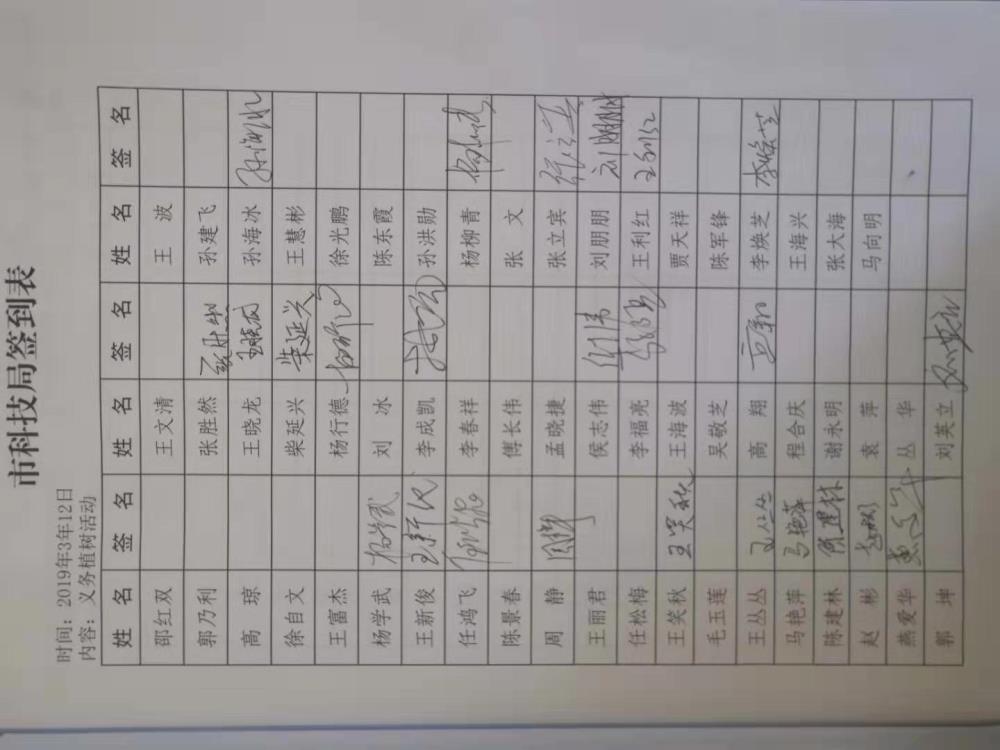 市科技局签到表
时间：2019年3年12日
内容：义务植树活动
姓 名 签 名 姓 名 签 名 姓 名 签 名
邵红双 王文清 王 波
郭乃利 张胜然 孙建飞
高 琼 王晓龙 王晓龙 孙海冰 孙海冰
徐自文 柴延兴 柴延兴 王慧彬
王富杰 杨行德 杨行德 徐光鹏
杨学武 杨学武 刘 冰 陈东霞
王新俊 王新俊 李成凯 孙洪勋
任鸿飞 任鸿飞 李春祥 杨柳青 杨柳青
陈景春 傅长伟 张 文
周 静 周静 孟晓捷 张立宾
王丽君 侯志伟 刘朋朋 刘朋朋
任松梅 李福亮 王利红 王利红
王笑秋 王笑秋 王海波 贾天祥
毛玉莲 吴敬芝 陈军锋
王丛丛 王丛丛 高 翔 李焕芝 李焕芝
马艳萍 马艳萍 程合庆 王海兴
陈建林 陈建林 谢永明 张大海
赵 彬 赵彬 袁 萍 马向明
燕爱华 丛 华
郭 坤 刘英立 刘英立